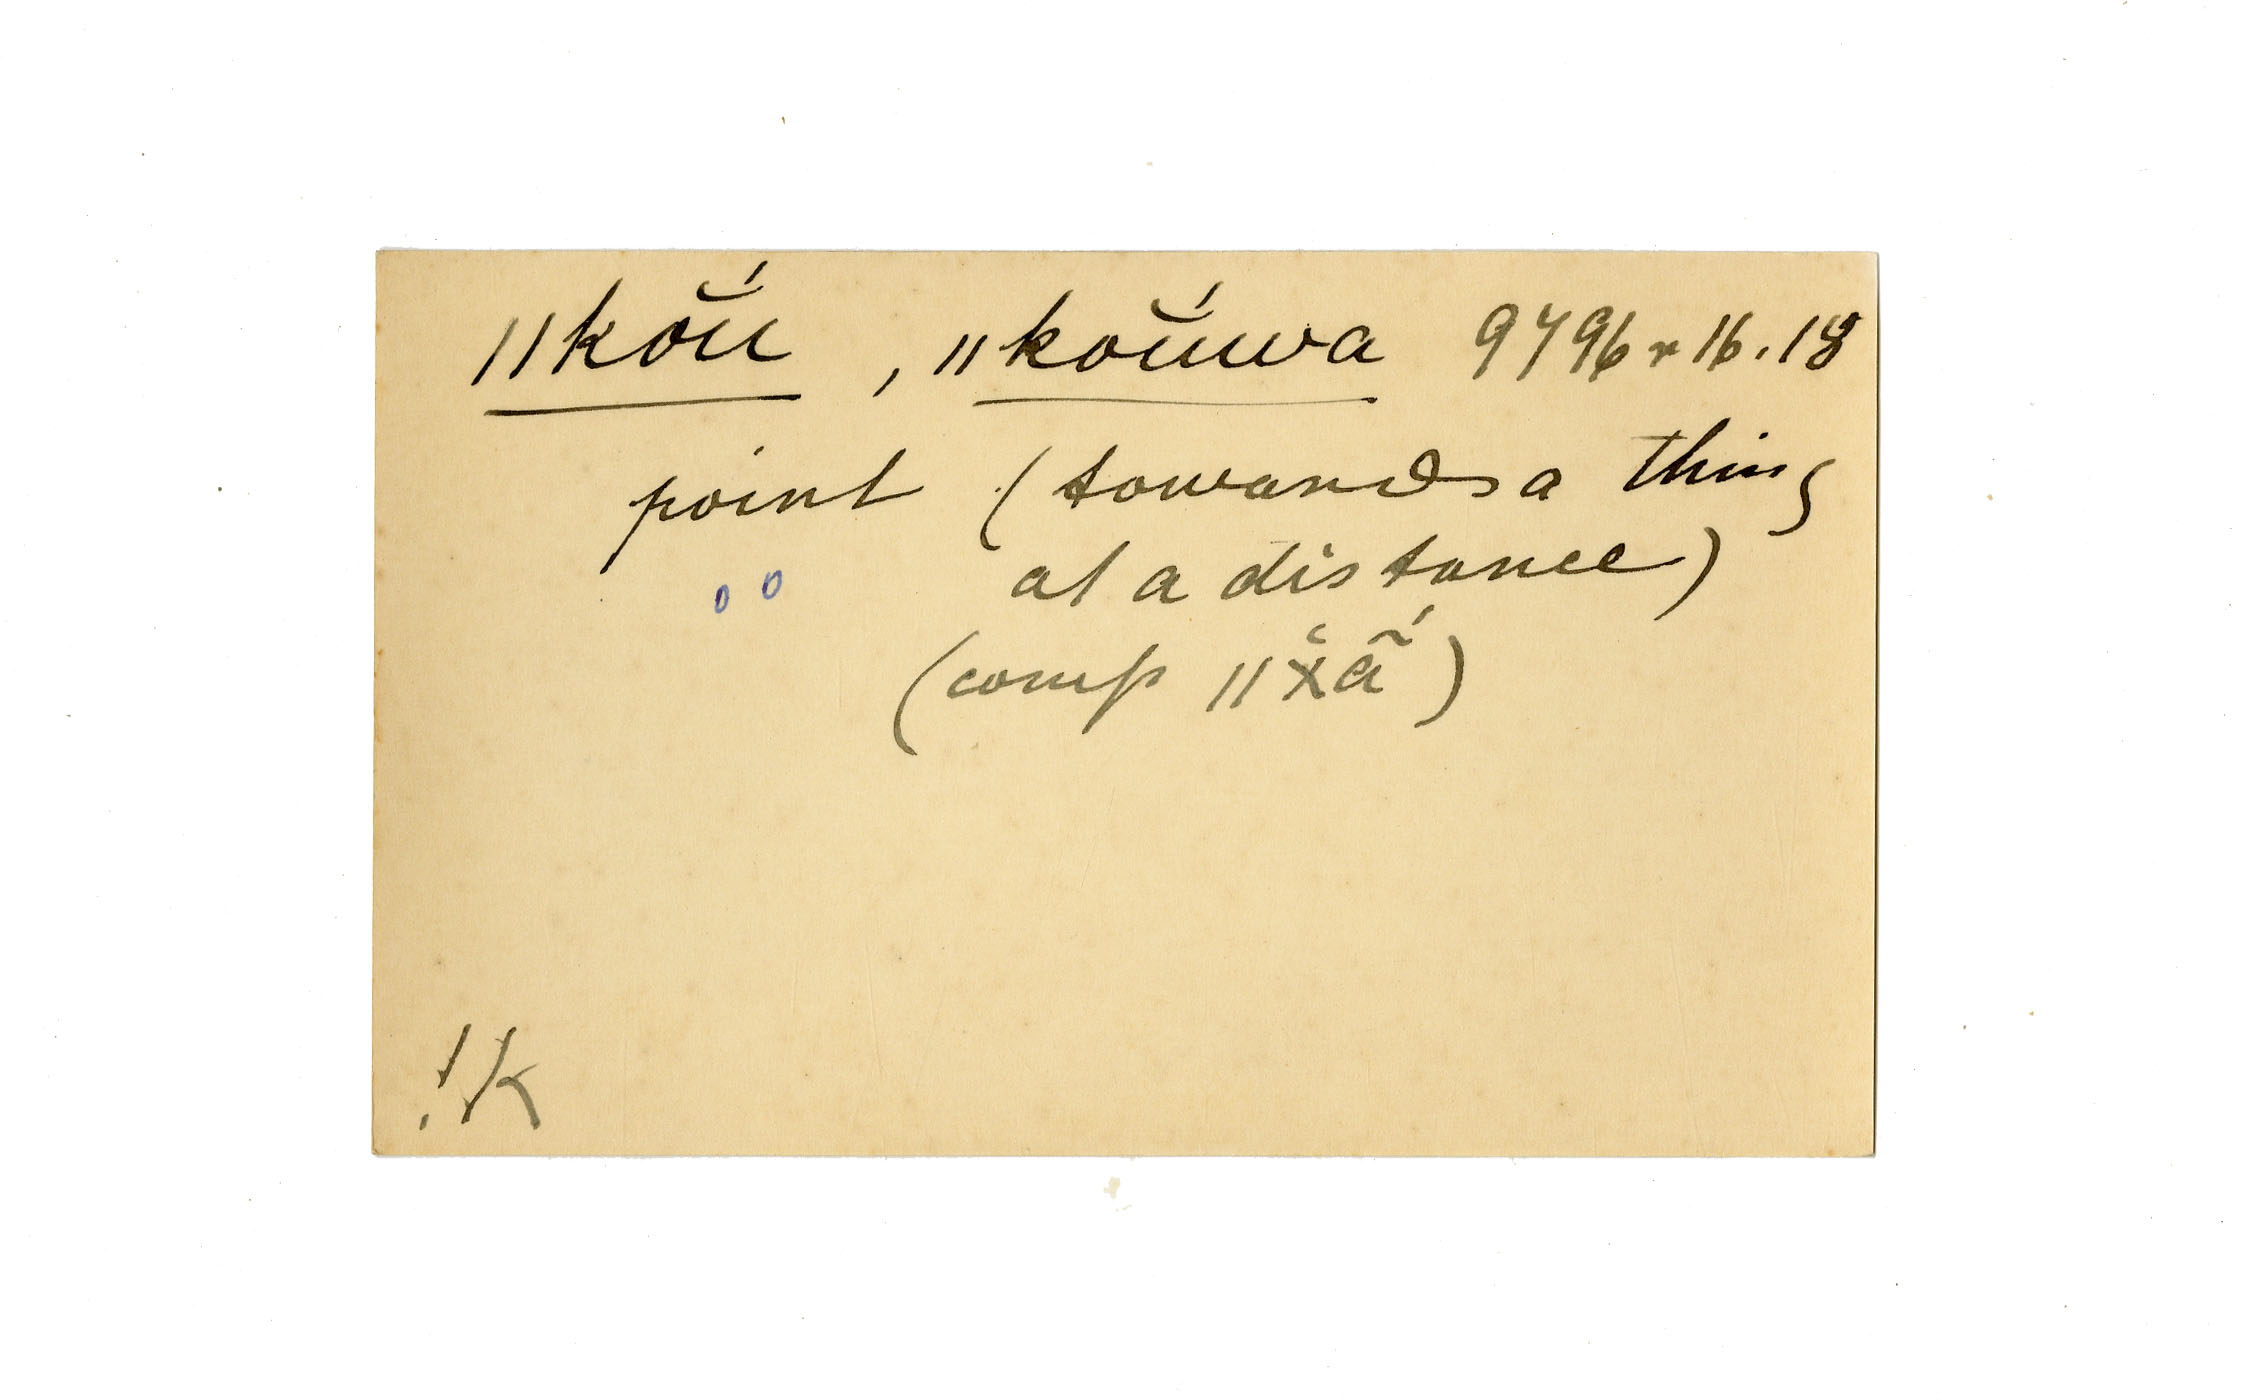 ǁkoŭ́, ǁkoŭ́wa 9796 r 16.18
point (towards a thing
at a distance)
(comp ǁx̆ã́)
!K